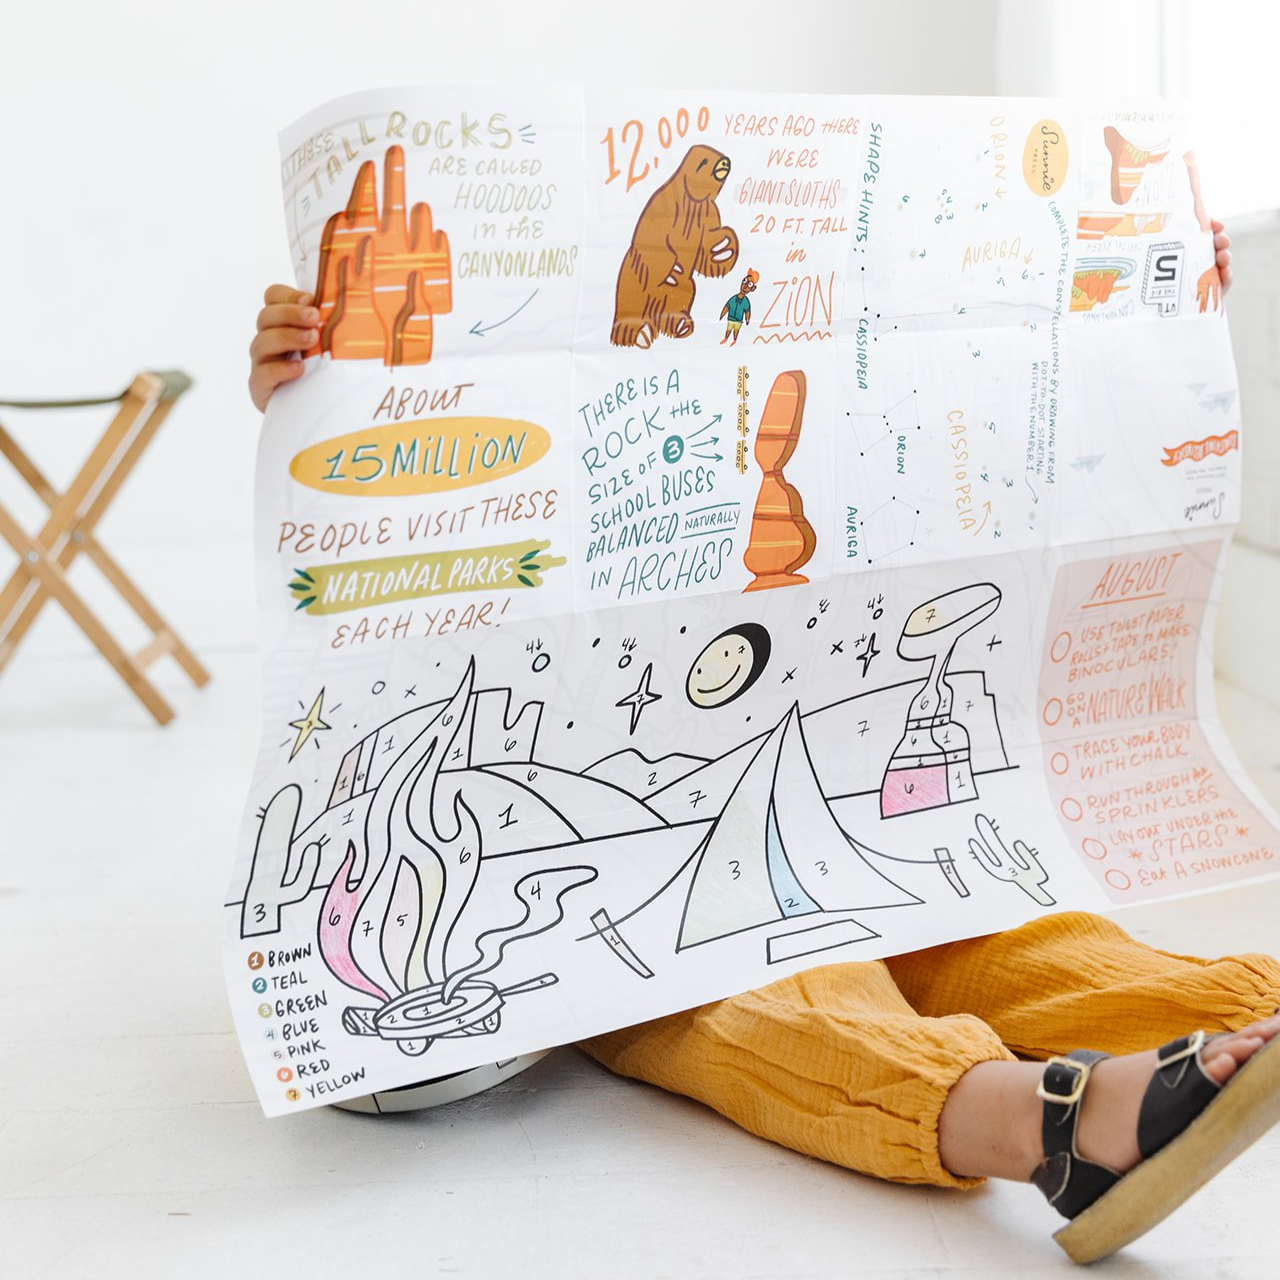 THESE
TALL ROCKS
ARE CALLED
HOODOOS
in the
CANYONLANDS
12,000
YEARS AGO THERE
WERE
GIANT SLOTHS
20 FT. TALL
in
ZION
SHAPE HINTS:
CASSIOPEIA
ORION
AURIGA
ORION
AURIGA
CASSIOPEIA
Sunnie
PRESS
COMPLETE THE CONSTELLATIONS BY DRAWING FROM
DOT-TO-DOT STARTING
WITH THE NUMBER 1
ZION
5
Sunnie
ABOUT
15 MILLION
PEOPLE VISIT THESE
NATIONAL PARKS
EACH YEAR!
THERE IS A
ROCK THE
SIZE OF 3
SCHOOL BUSES
BALANCED NATURALLY
IN ARCHES
AUGUST
USE TOILET PAPER
ROLLS + TAPE to MAKE
BINOCULARS!
GO ON A NATURE WALK
TRACE YOUR BODY
WITH CHALK
RUN THROUGH
SPRINKLERS
LAY OUT UNDER the
* STARS *
Eat A SNOWCONE
1 BROWN
2 TEAL
3 GREEN
4 BLUE
5 PINK
6 RED
7 YELLOW